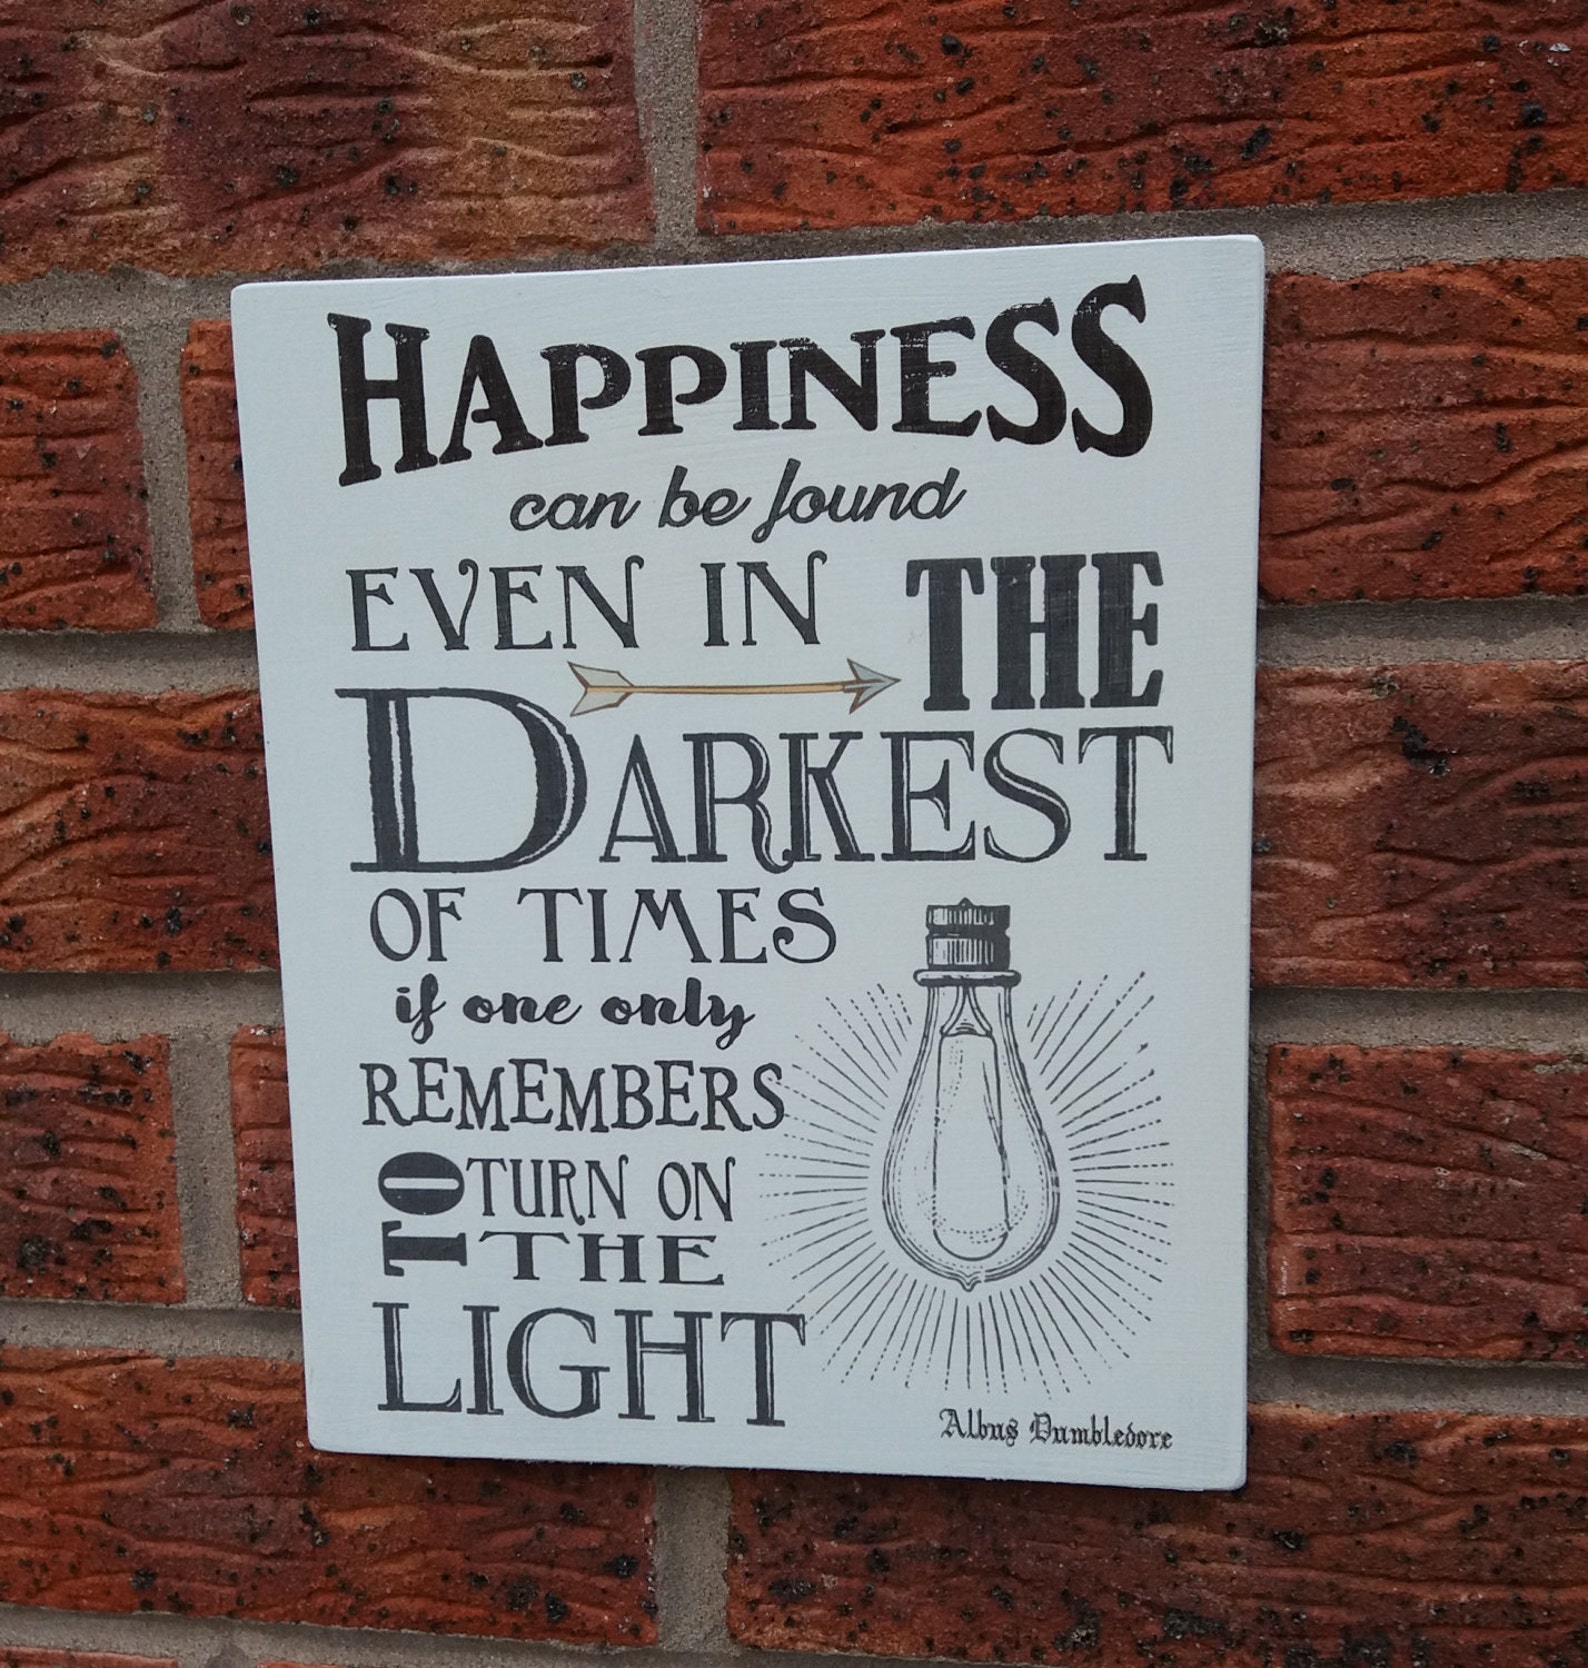 HAPPINESS
can be found
EVEN IN THE
DARKEST
OF TIMES
if one only
REMEMBERS
TO TURN ON
THE
LIGHT
Albus Dumbledore